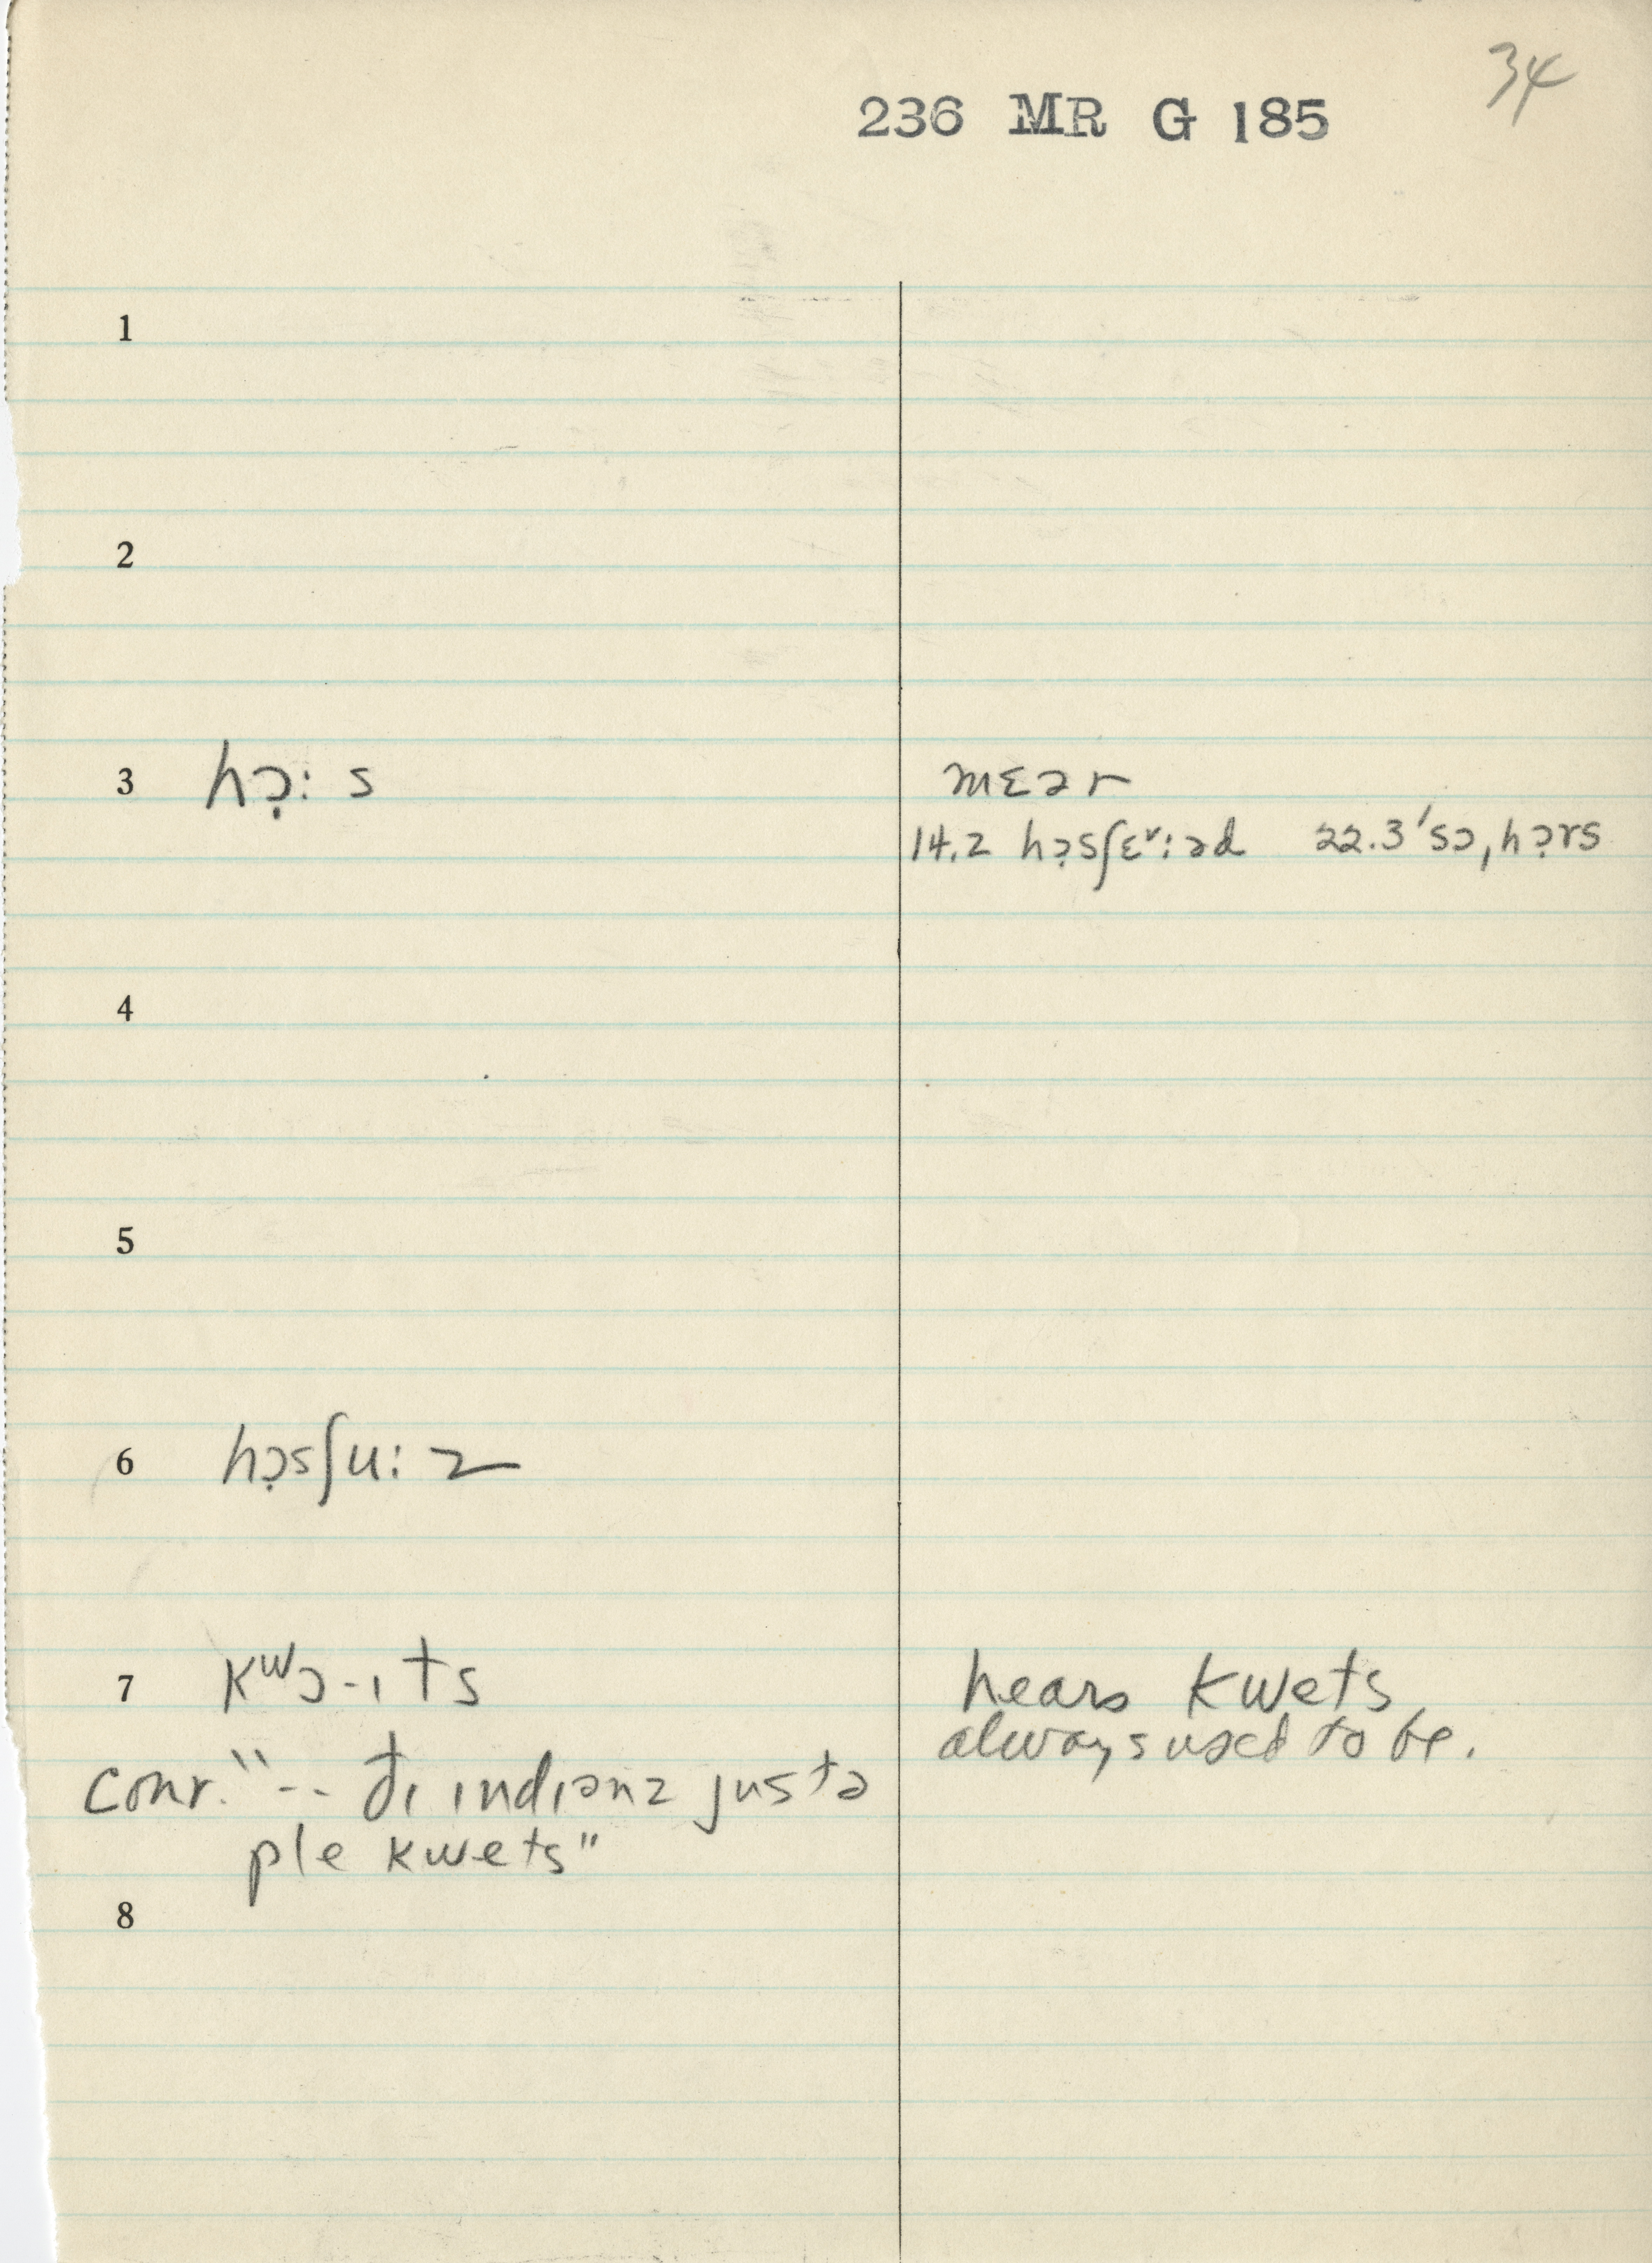 34
236 MR G 185
1
2
3 hɔ̣: s mɛər
14.2 hɔ̣sʃɛ˅:əd 22.3 ˈsɔˌhɔ̣rs
4
5
6 hɔ̣sʃu: z
7 kʷɔ-ɪts hears kwets
always used to be.
conv. "-- đɪ ɪndɪənz justə
ple kwets"
8